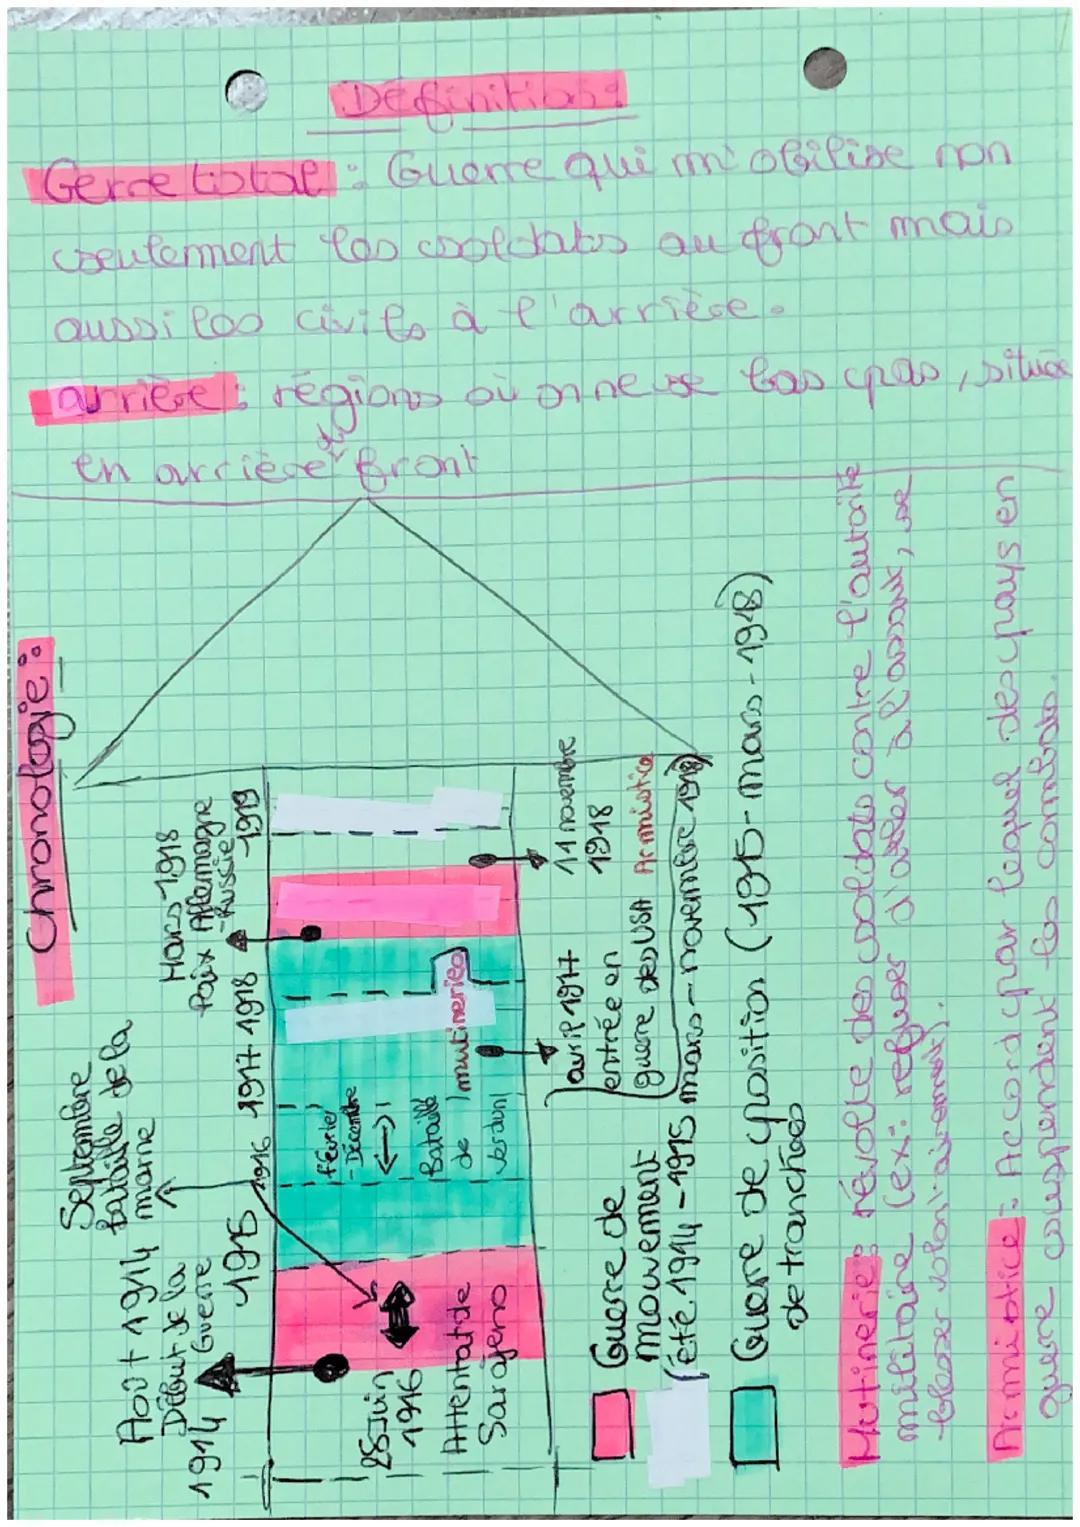 Définitions
Gerre total : Guerre qui m'obilise non
seulement les soldats au front mais
aussi les civils à l'arrière.
arrière : régions où on ne se bas pas, située
en arrière du front
Chronologie :
Mars 1918
Paix Allemagne
-Russie
Septembre
bataille de la
marne
Août 1914
Début de la
Guerre
1914
1915
1916
1917
1918
1919
28 Juin
1916
Attentat de
Sarajero
février
-Décembre
Bataille
de
Verdun
mutineries
avril 1917
entrée en
guerre des USA
11 novembre
1918
Armistice
Guerre de
mouvement
(été 1914-1915 mars-novembre 1918)
Guerre de position (1915-mars-1918)
de tranchées
Mutinerie : révolte des soldats contre l'autorité
militaire (ex: refuser d'aller à l'assaut, se
blesser volontairement).
Armistice : Accord par lequel des pays en
guerre suspendent les combats.